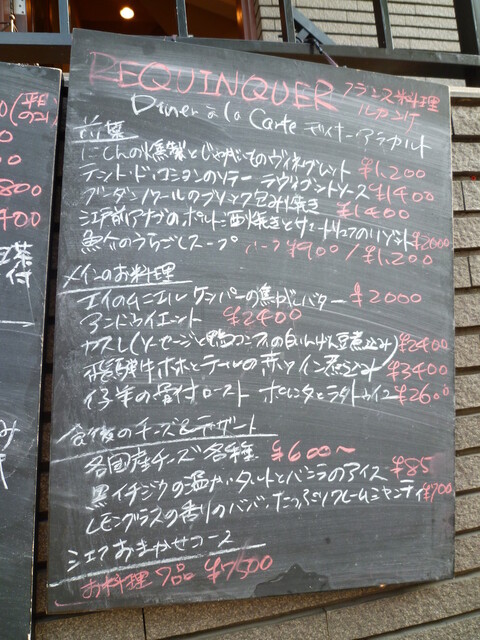 REQUINQUER フランス料理
ルカンケ
Diner à la Carte ディナーアラカルト
前菜
にしんの燻製とじゃがいものヴィネグレット ¥1,200
テット・ド・コションのソテー ラヴィゴットソース ¥1400
ブーダンノワールのブリック包み焼き ¥1400
江戸前アナゴのポルト酒焼きとサマートリュフのリゾット ¥2000
魚介のうらごしスープ ハーフ ¥900 / ¥1,200
メインのお料理
エイのムニエル ケッパーの焦がしバター ¥2000
アンドゥイエット ¥2400
カスレ(ソーセージと鴨コンフィの白いんげん豆煮込み) ¥2400
飛騨牛ホホとテールの赤ワイン煮込み ¥3400
仔羊の骨付ロースト ポレンタとラタトゥイユ ¥2600
食後のチーズ&デザート
各国産チーズ各種 ¥600〜
黒イチジクの温かいタルトとバニラのアイス ¥85
レモングラスの香りのババ・たっぷりクレームシャンティ ¥700
シェフおまかせコース
お料理 7品 ¥7500
800
400
紅茶
付
み